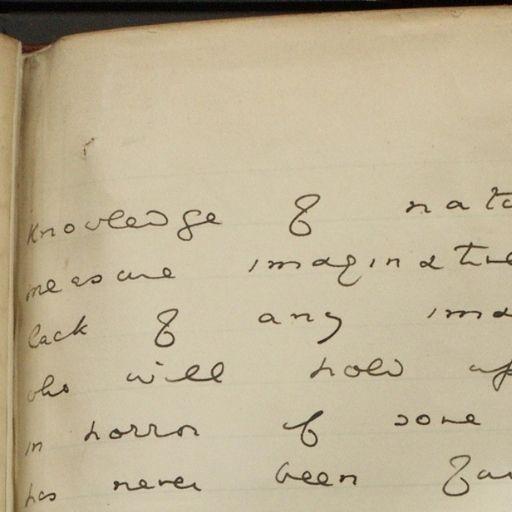 Knowledge of nat
measure imaginative
lack of any ima
who will hold up
in horror of some
has never been